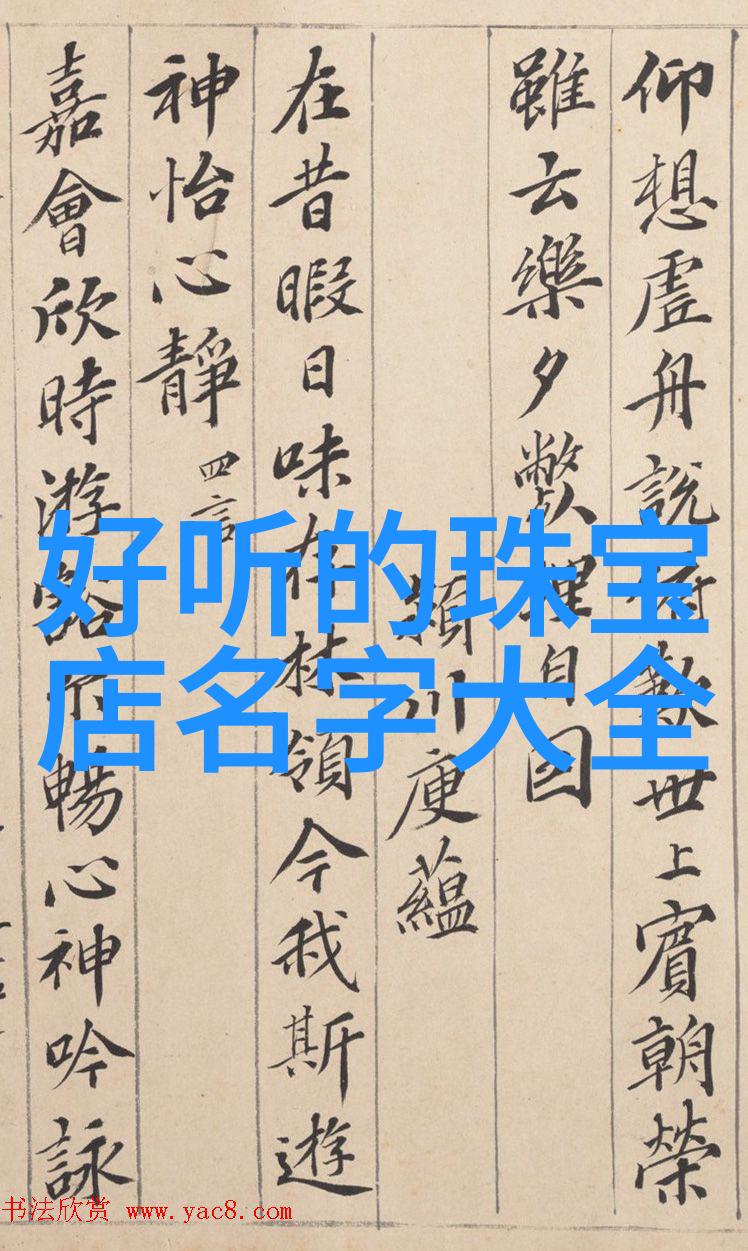 仰想虛舟說俯歎世上賓朝榮
雖云樂夕弊理自回
潁川庾蘊
在昔暇日味存林嶺今我斯遊
神怡心靜 四言
嘉會欣時游豁尔暢心神吟詠
好听的珠宝
店名字大全
书法欣赏 www.yac8.com